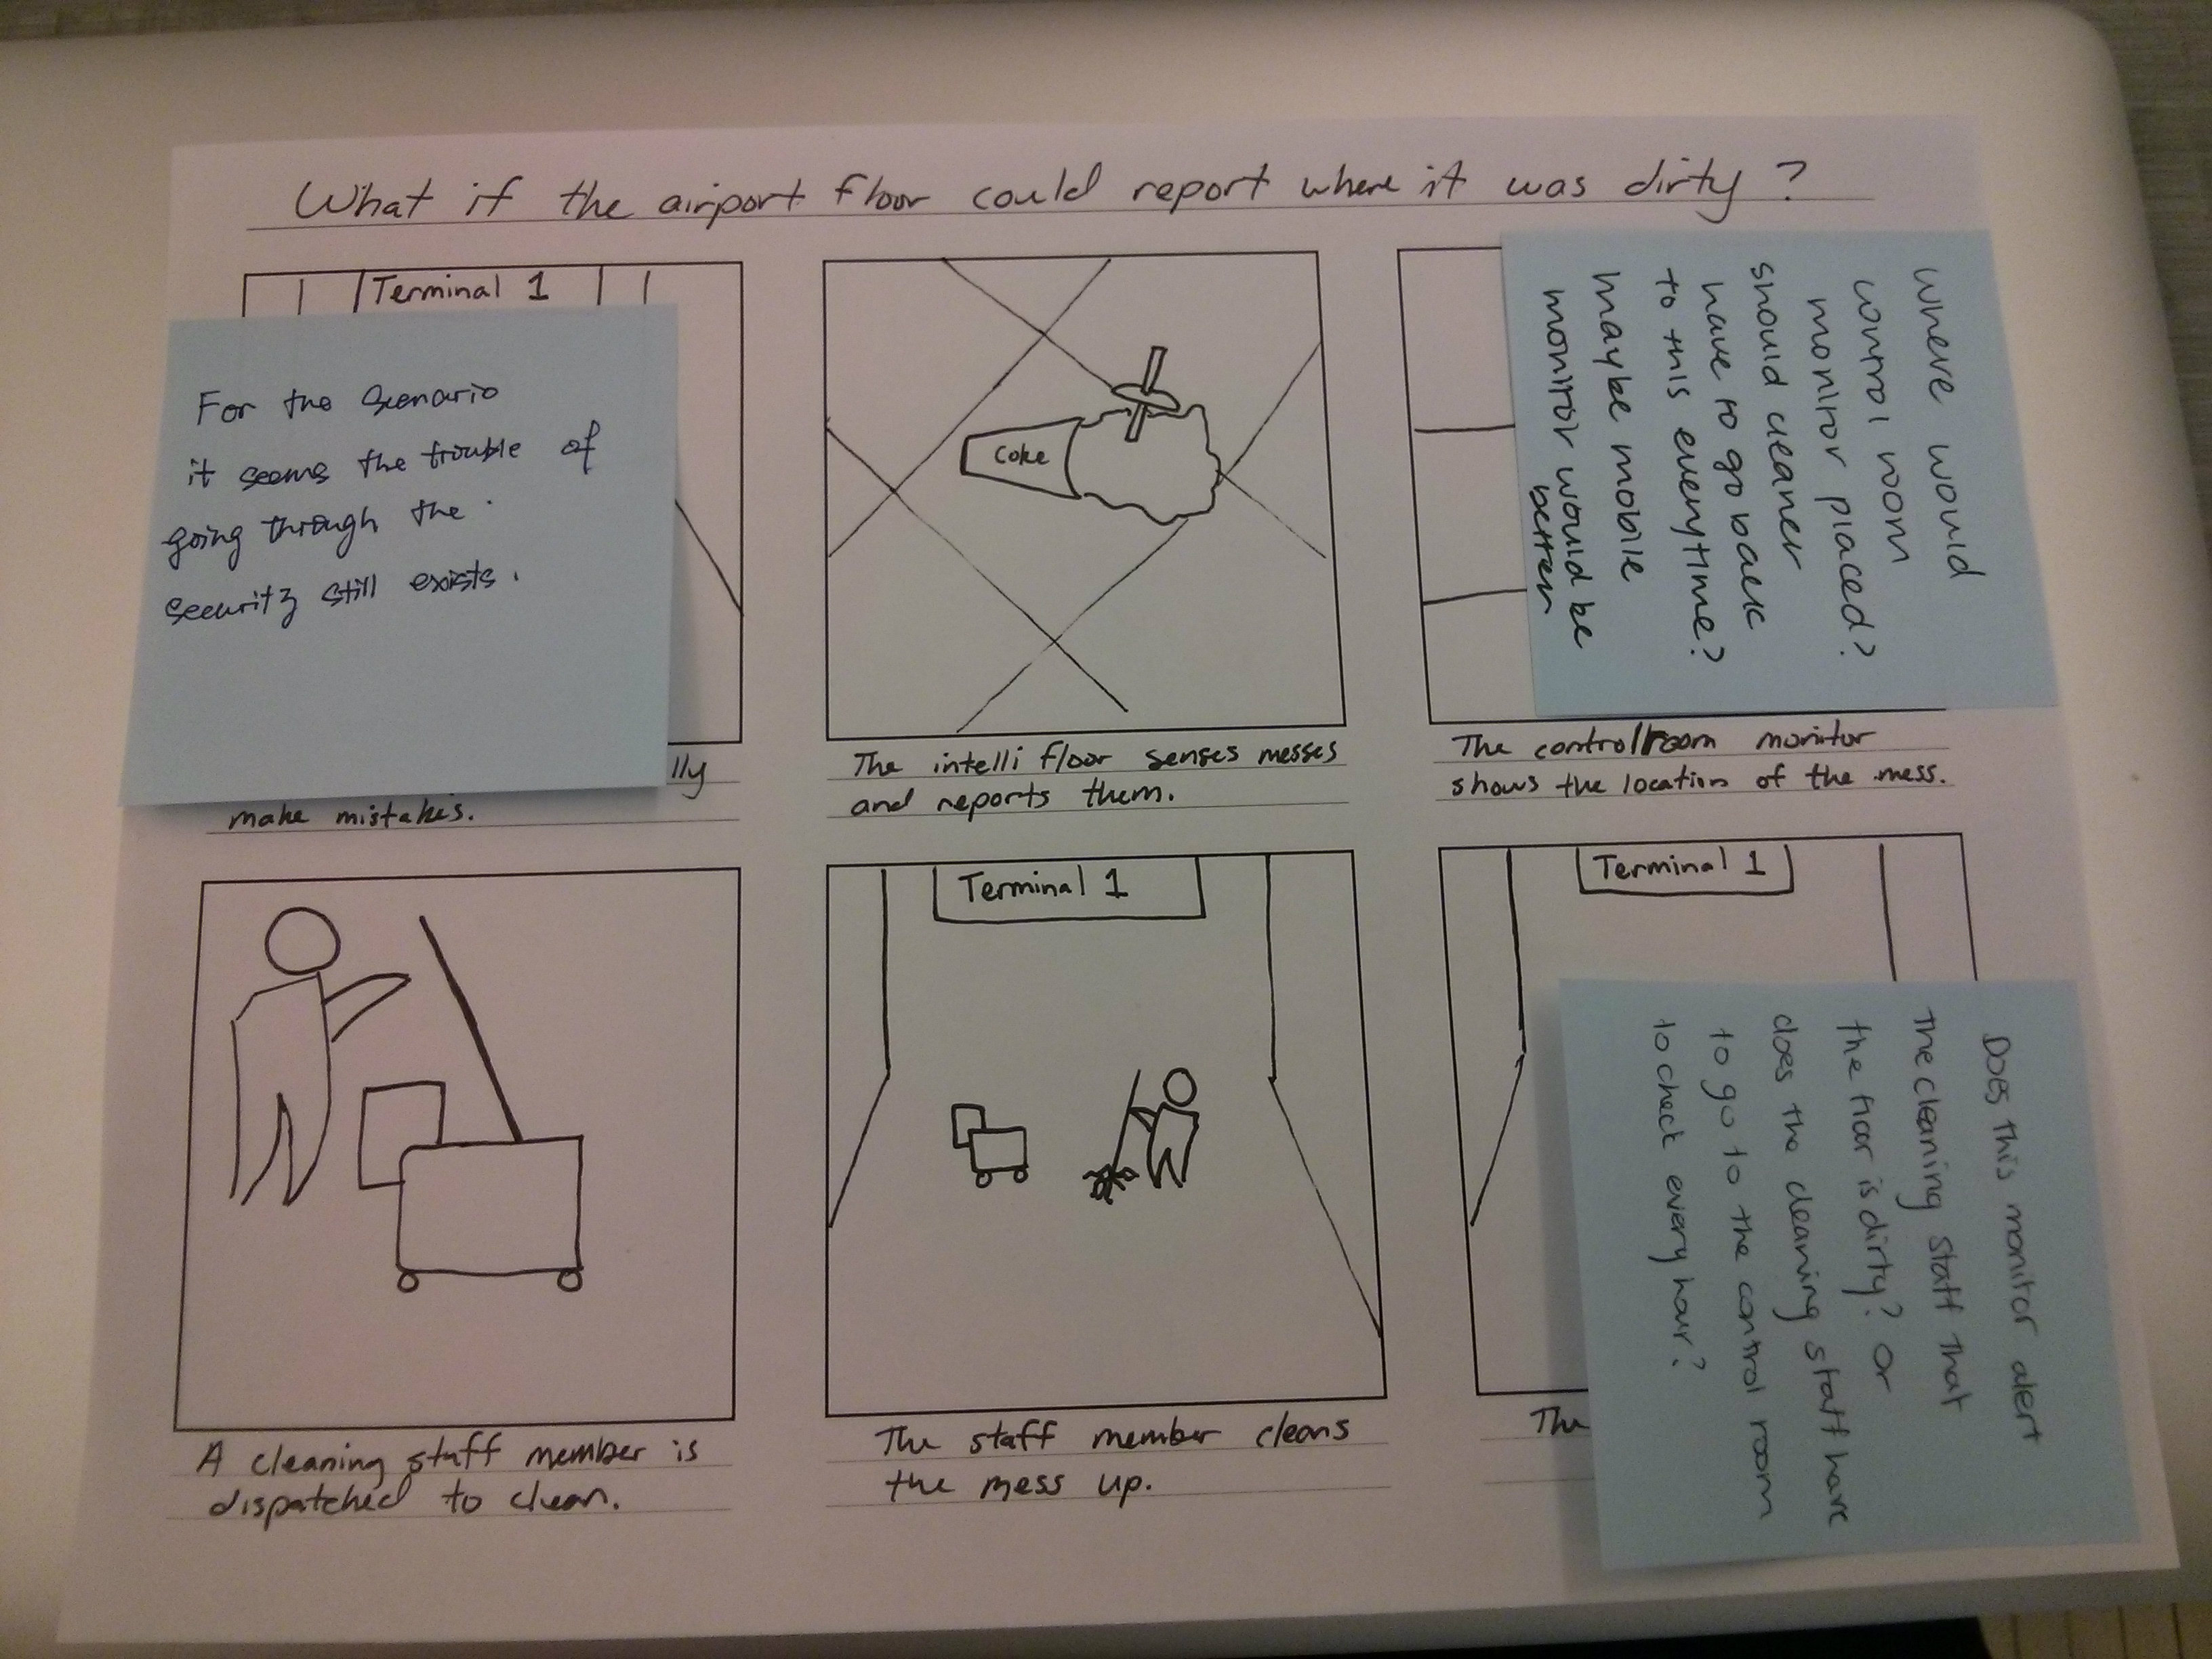 What if the airport floor could report where it was dirty?
Terminal 1
For the Scenario
it seems the trouble of
going through the
security still exists.
lly
make mistakes.
Coke
The intelli floor senses messes
and reports them.
where would
control room
monitor placed?
should cleaner
have to go back
to this everytime?
maybe mobile
monitor would be
better
The controlroom monitor
shows the location of the mess.
A cleaning staff member is
dispatched to clean.
Terminal 1
The staff member cleans
the mess up.
Terminal 1
Does this monitor alert
the cleaning staff that
the floor is dirty? or
does the cleaning staff have
to go to the control room
to check every hour?
The